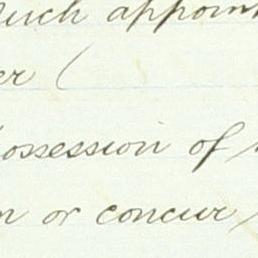 Such appoint
er (
Possession of
n or concur